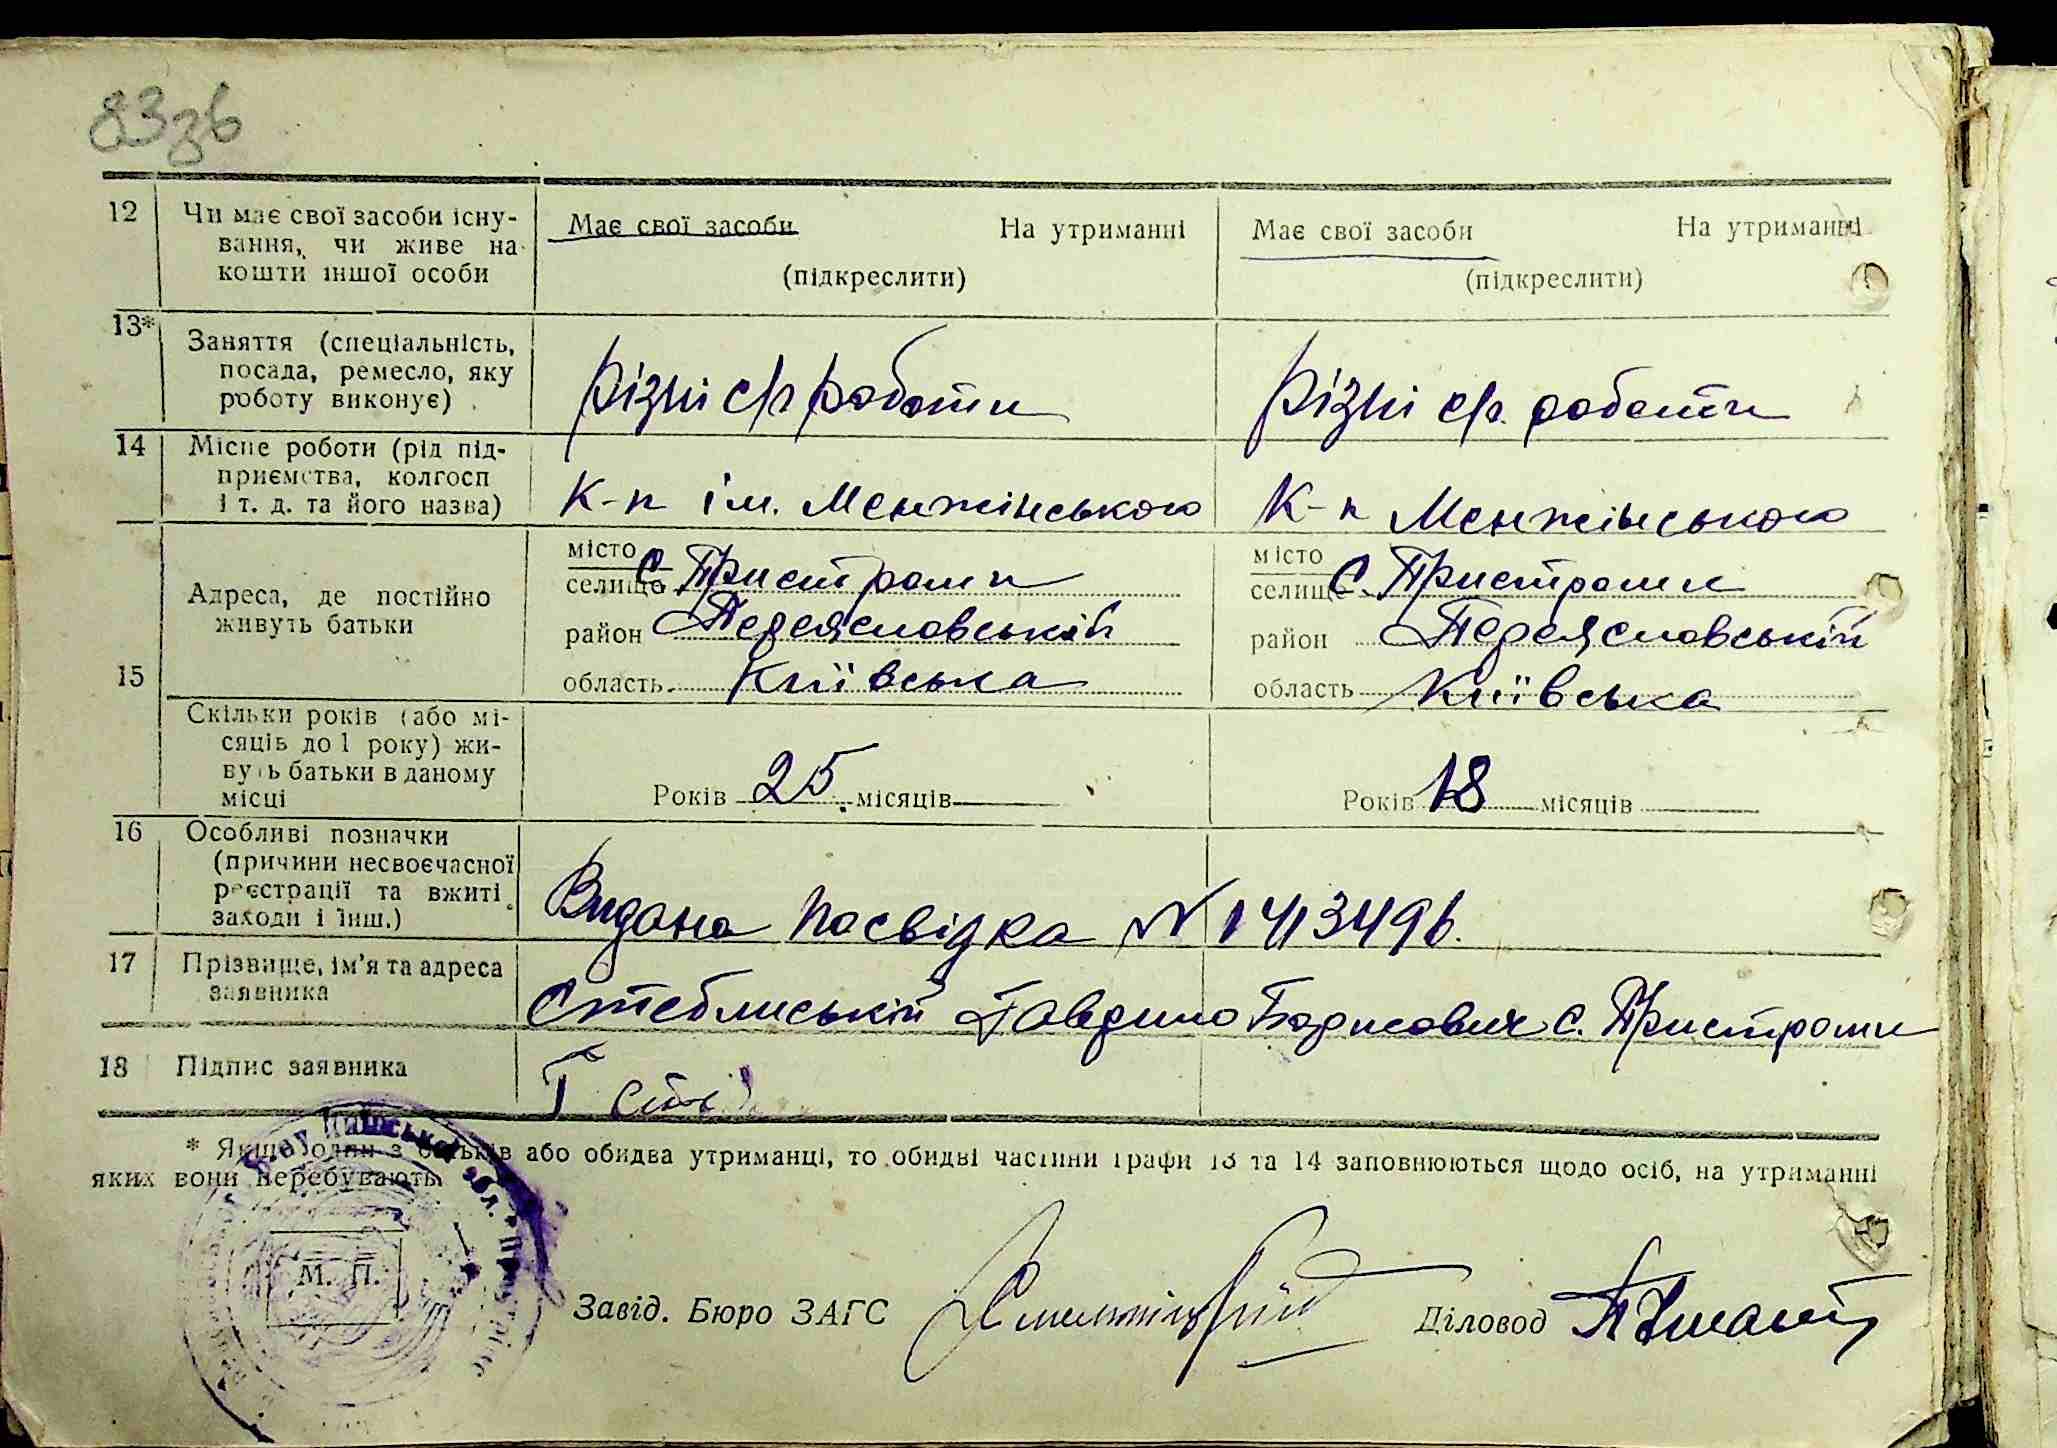 83зв
12 Чи має свої засоби існу-
вання, чи живе на
кошти іншої особи
Має свої засоби На утриманні
(підкреслити)
Має свої засоби На утриманні
(підкреслити)
13* Заняття (спеціальність,
посада, ремесло, яку
роботу виконує)
Різні с/г роботи
Різні с/г. роботи
14 Місце роботи (рід під-
приємства, колгосп
і т. д. та його назва)
К-п ім. Менжінського
К-п Менжінського
15
Адреса, де постійно
живуть батьки
місто
селище с. Пристроми
район Переяславській
область Київська
місто
селище с. Пристроми
район Переяславській
область Київська
Скільки років (або мі-
сяців до 1 року) жи-
вуть батьки в даному
місці
Років 25 місяців
Років 18 місяців
16 Особливі позначки
(причини несвоєчасної
реєстрації та вжиті
заходи і інш.)
Видана посвідка № 1413496.
17 Прізвище, ім'я та адреса
заявника
Стеблиській Гаврило Борисович с. Пристроми
18 Підпис заявника
Г
* Якщо один з батьків або обидва утриманці, то обидві частини графи 13 та 14 заповнюються щодо осіб, на утриманні
яких вони перебувають.
М. П.
Завід. Бюро ЗАГС
Діловод